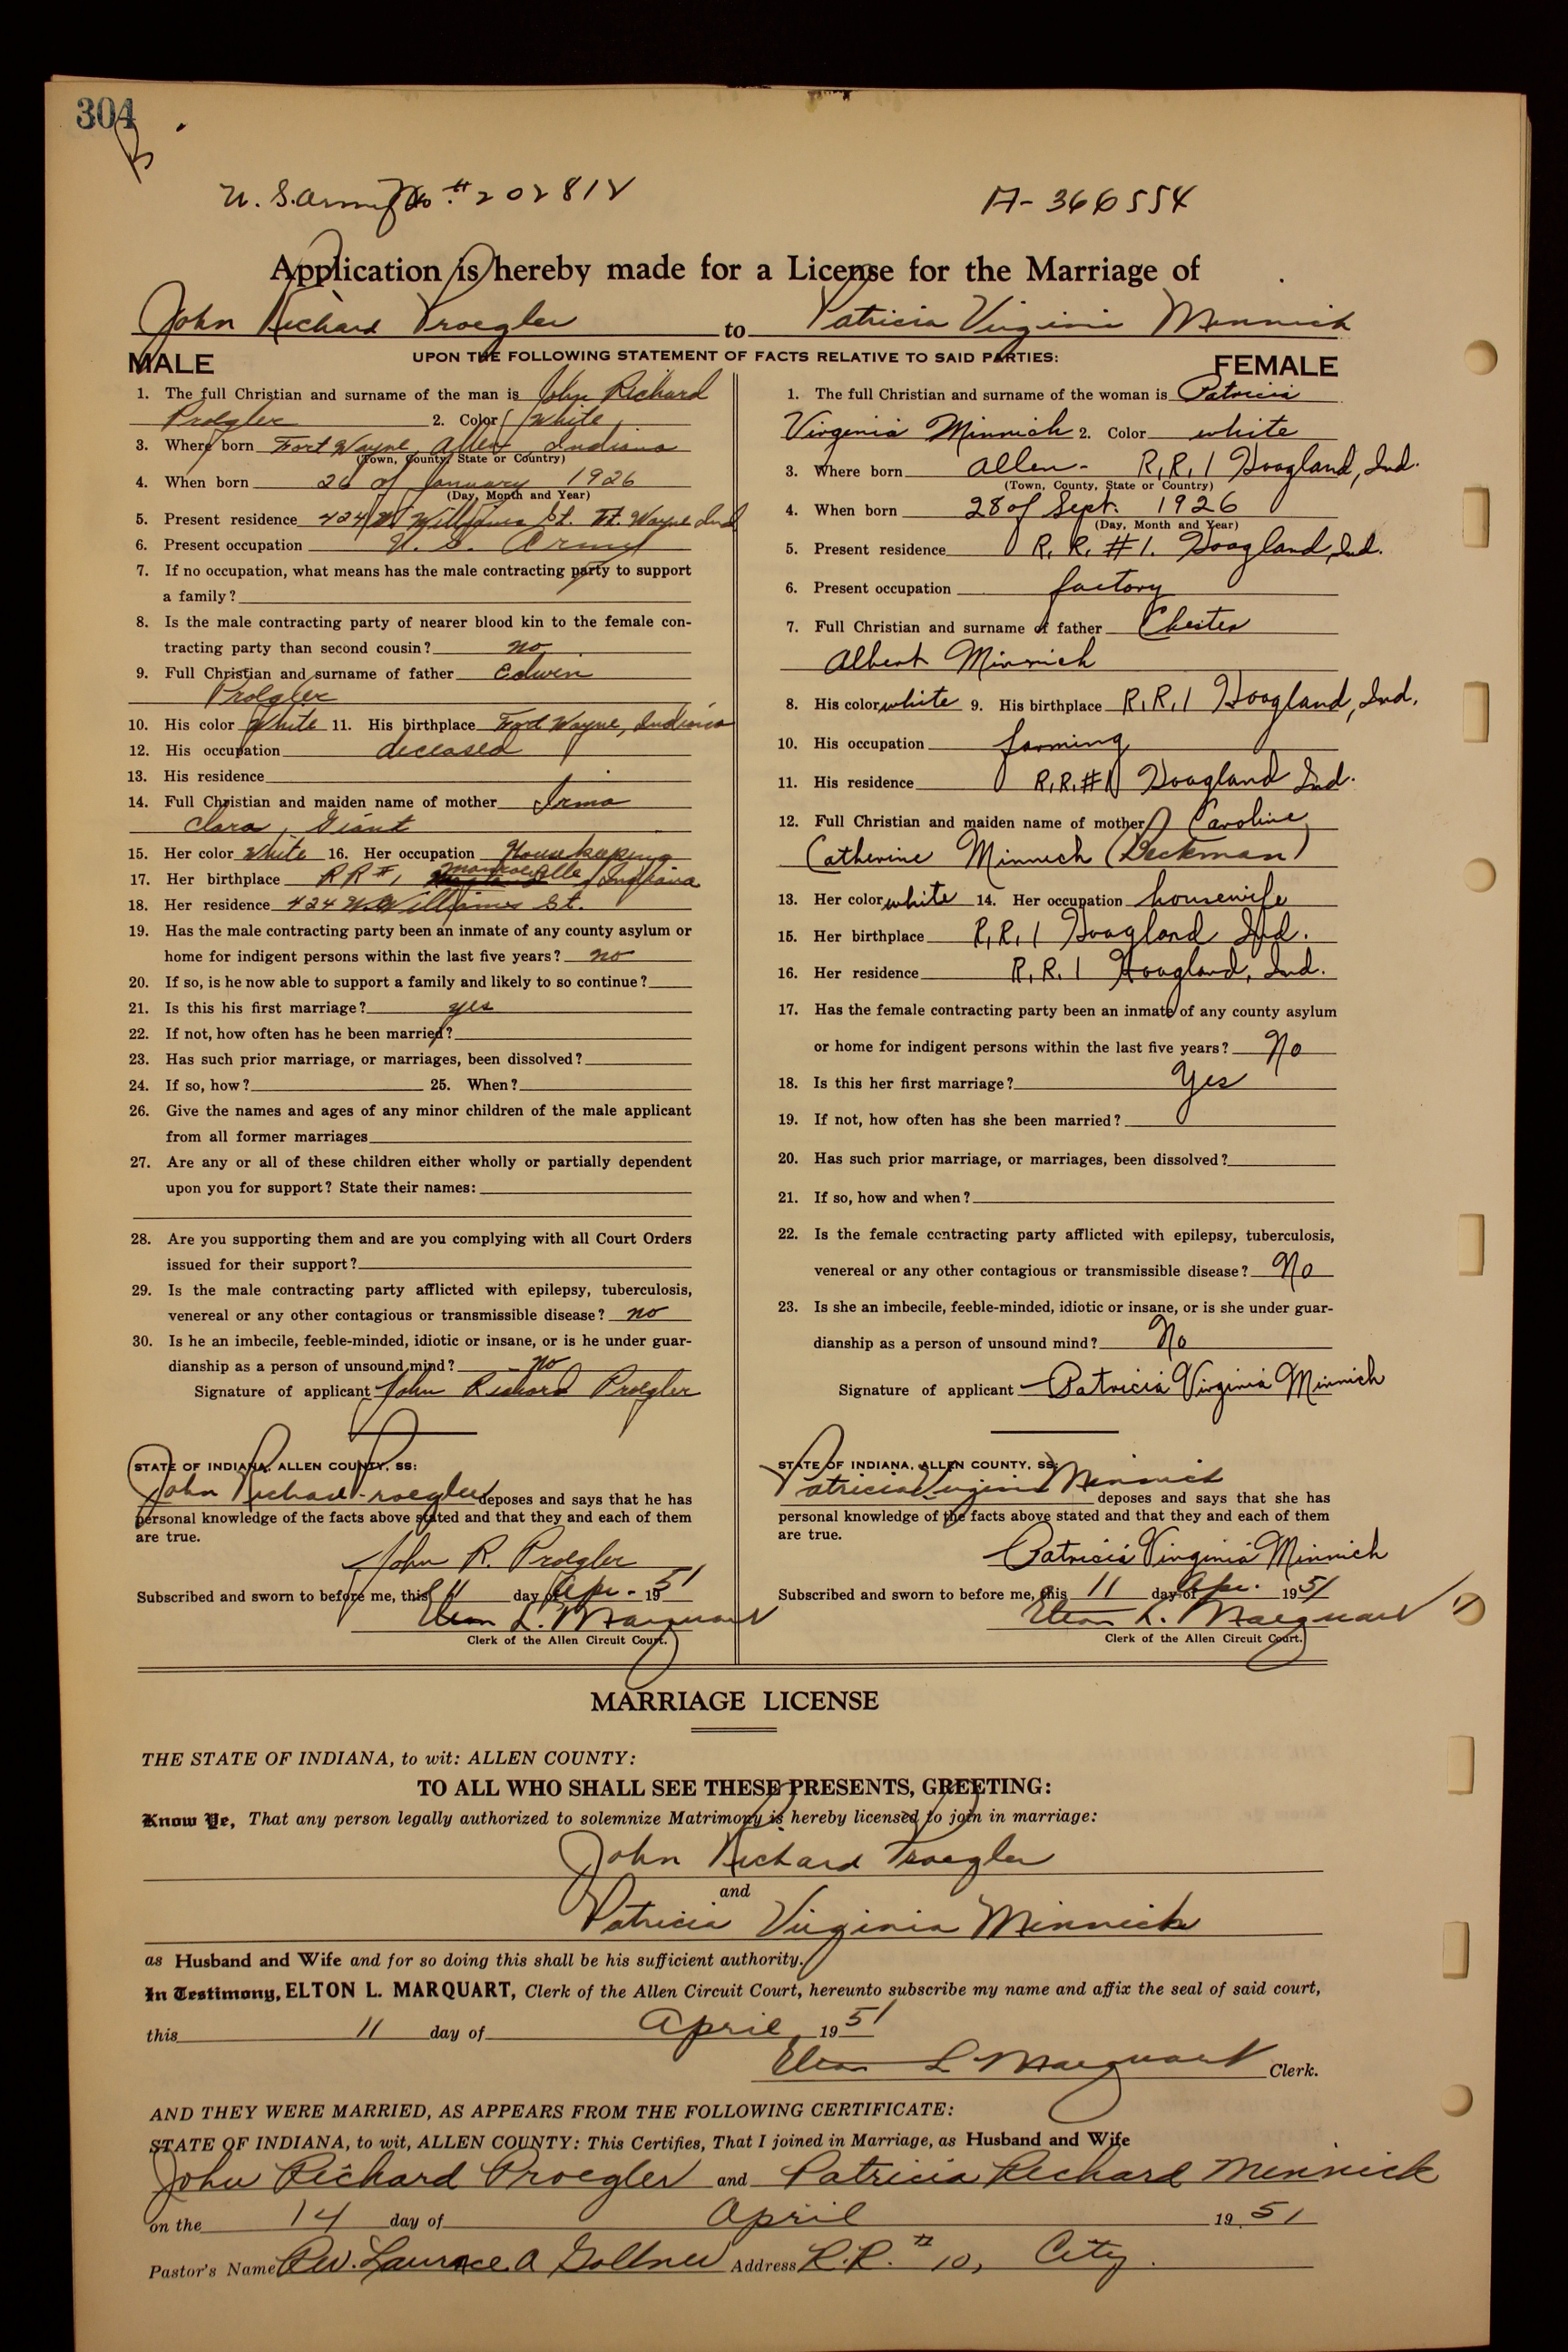 304
U.S. Army No. # 202812
A-366554
Application is hereby made for a License for the Marriage of
John Richard Proegler to Patricia Virginia Minnich
UPON THE FOLLOWING STATEMENT OF FACTS RELATIVE TO SAID PARTIES:
MALE
1. The full Christian and surname of the man is John Richard
Proegler 2. Color White
3. Where born Fort Wayne, Allen Indiana
(Town, County, State or Country)
4. When born 26 of January 1926
(Day, Month and Year)
5. Present residence 424 W Williams St. Ft. Wayne Ind
6. Present occupation U. S. Army
7. If no occupation, what means has the male contracting party to support
a family?
8. Is the male contracting party of nearer blood kin to the female con-
tracting party than second cousin? no
9. Full Christian and surname of father Edwin
Proegler
10. His color White 11. His birthplace Fort Wayne, Indiana
12. His occupation deceased
13. His residence
14. Full Christian and maiden name of mother Irma
Clara, Giant
15. Her color White 16. Her occupation Housekeeping
17. Her birthplace RR #1 Monroeville Indiana
18. Her residence 424 W. Williams St.
19. Has the male contracting party been an inmate of any county asylum or
home for indigent persons within the last five years? no
20. If so, is he now able to support a family and likely to so continue?
21. Is this his first marriage? yes
22. If not, how often has he been married?
23. Has such prior marriage, or marriages, been dissolved?
24. If so, how? 25. When?
26. Give the names and ages of any minor children of the male applicant
from all former marriages
27. Are any or all of these children either wholly or partially dependent
upon you for support? State their names:
28. Are you supporting them and are you complying with all Court Orders
issued for their support?
29. Is the male contracting party afflicted with epilepsy, tuberculosis,
venereal or any other contagious or transmissible disease? no
30. Is he an imbecile, feeble-minded, idiotic or insane, or is he under guar-
dianship as a person of unsound mind? no
Signature of applicant John Richard Proegler
STATE OF INDIANA, ALLEN COUNTY, SS:
John Richard Proegler deposes and says that he has
personal knowledge of the facts above stated and that they and each of them
are true.
John R. Proegler
Subscribed and sworn to before me, this 11 day of Apr. 1951
Elton L. Marquart
Clerk of the Allen Circuit Court.
FEMALE
1. The full Christian and surname of the woman is Patricia
Virginia Minnich 2. Color white
3. Where born Allen - R.R.1 Hoagland, Ind.
(Town, County, State or Country)
4. When born 28 of Sept. 1926
(Day, Month and Year)
5. Present residence R. R. #1. Hoagland, Ind.
6. Present occupation factory
7. Full Christian and surname of father Chester
Albert Minnich
8. His color white 9. His birthplace R.R.1 Hoagland, Ind.
10. His occupation farming
11. His residence R.R.#1 Hoagland Ind.
12. Full Christian and maiden name of mother Caroline
Catherine Minnich (Beckman)
13. Her color white 14. Her occupation housewife
15. Her birthplace R.R.1 Hoagland Ind.
16. Her residence R.R.1 Hoagland, Ind.
17. Has the female contracting party been an inmate of any county asylum
or home for indigent persons within the last five years? No
18. Is this her first marriage? Yes
19. If not, how often has she been married?
20. Has such prior marriage, or marriages, been dissolved?
21. If so, how and when?
22. Is the female contracting party afflicted with epilepsy, tuberculosis,
venereal or any other contagious or transmissible disease? No
23. Is she an imbecile, feeble-minded, idiotic or insane, or is she under guar-
dianship as a person of unsound mind? No
Signature of applicant Patricia Virginia Minnich
STATE OF INDIANA, ALLEN COUNTY, SS:
Patricia Virginia Minnich
deposes and says that she has
personal knowledge of the facts above stated and that they and each of them
are true.
Patricia Virginia Minnich
Subscribed and sworn to before me, this 11 day of Apr. 1951
Elton L. Marquart
Clerk of the Allen Circuit Court.
MARRIAGE LICENSE
THE STATE OF INDIANA, to wit: ALLEN COUNTY:
TO ALL WHO SHALL SEE THESE PRESENTS, GREETING:
Know Ye, That any person legally authorized to solemnize Matrimony is hereby licensed to join in marriage:
John Richard Proegler
and
Patricia Virginia Minnich
as Husband and Wife and for so doing this shall be his sufficient authority.
In Testimony, ELTON L. MARQUART, Clerk of the Allen Circuit Court, hereunto subscribe my name and affix the seal of said court,
this 11 day of April 1951
Elton L Marquart Clerk.
AND THEY WERE MARRIED, AS APPEARS FROM THE FOLLOWING CERTIFICATE:
STATE OF INDIANA, to wit, ALLEN COUNTY: This Certifies, That I joined in Marriage, as Husband and Wife
John Richard Proegler and Patricia Richard Minnick
on the 14 day of April 1951
Pastor's Name Rev. Laurence A Gollner Address R.R. # 10, City.